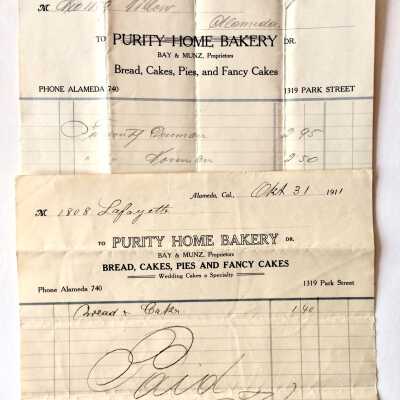 M
Alameda,
TO PURITY HOME BAKERY DR.
BAY & MUNZ, Proprietors
Bread, Cakes, Pies, and Fancy Cakes
PHONE ALAMEDA 740 1319 PARK STREET
2 95
" " 2 50
Alameda, Cal., Okt 31 1911
M 1808 Lafayette
TO PURITY HOME BAKERY DR.
BAY & MUNZ, Proprietors
BREAD, CAKES, PIES AND FANCY CAKES
Wedding Cakes a Specialty
Phone Alameda 740 1319 Park Street
Bread & Cake 1.40
Paid